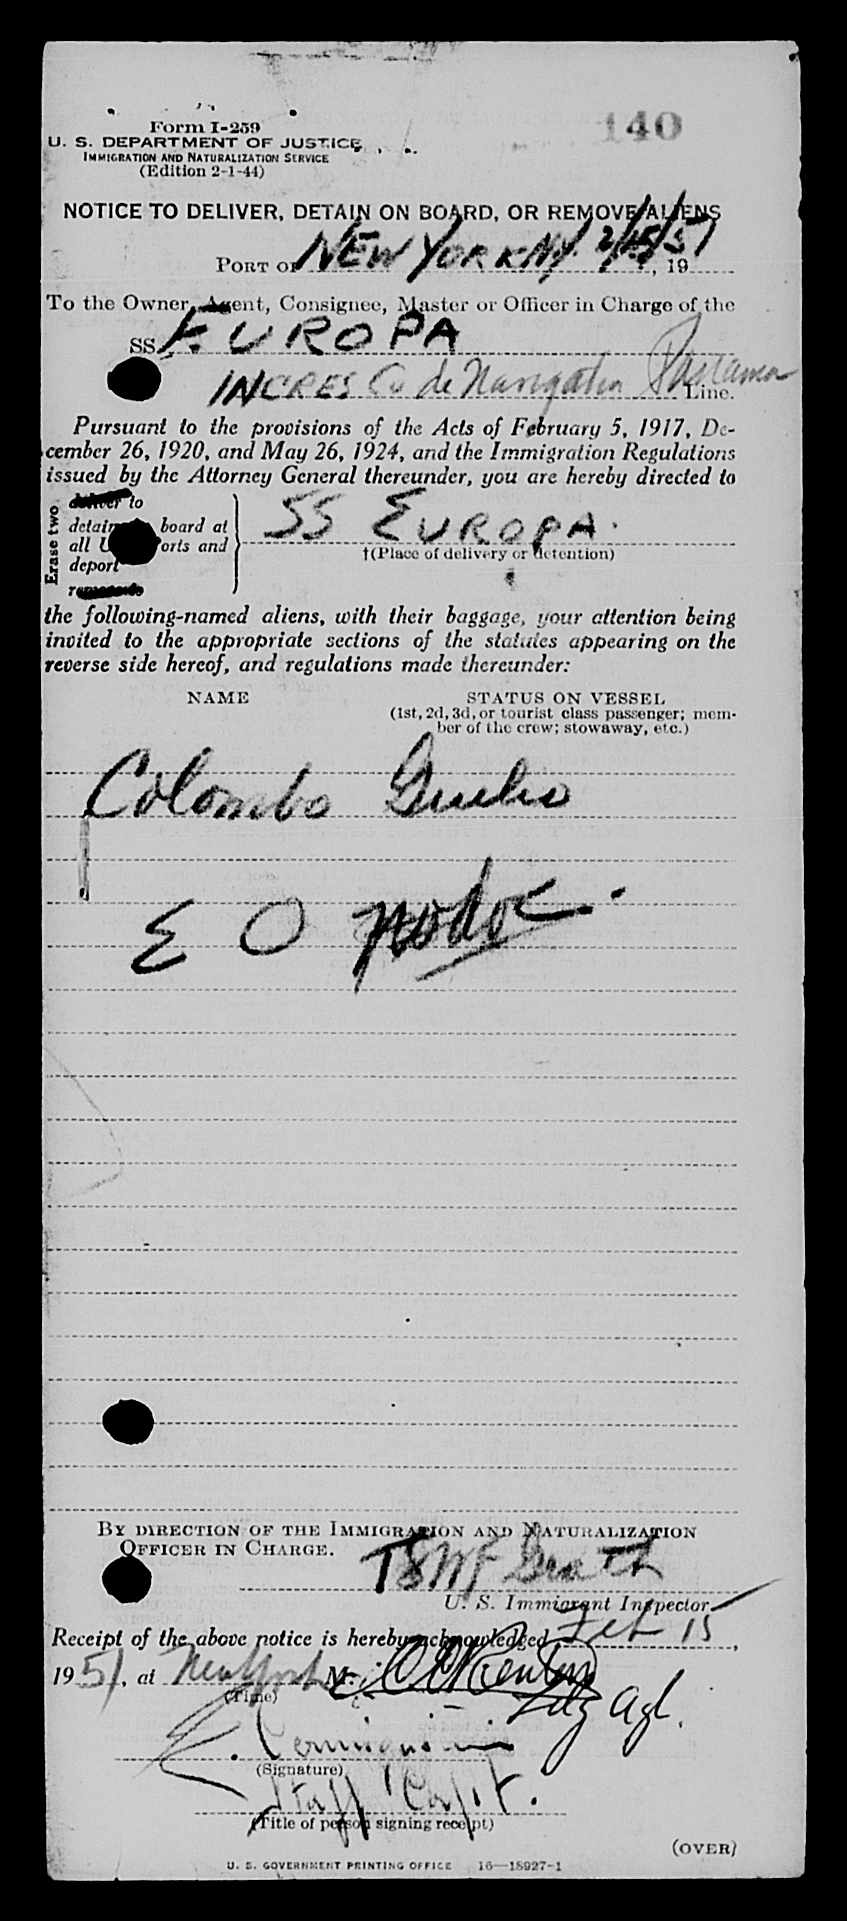 Form I-259
140
U. S. DEPARTMENT OF JUSTICE
IMMIGRATION AND NATURALIZATION SERVICE
(Edition 2-1-44)
NOTICE TO DELIVER, DETAIN ON BOARD, OR REMOVE ALIENS
PORT OF NEW YORK NY. 2/15/51, 19
To the Owner, Agent, Consignee, Master or Officer in Charge of the
SS EUROPA
INCRES Co de Panama Line.
Pursuant to the provisions of the Acts of February 5, 1917, De-
cember 26, 1920, and May 26, 1924, and the Immigration Regulations
issued by the Attorney General thereunder, you are hereby directed to
Erase two
deliver to
detain board at
all U orts and
deport
SS EUROPA.
†(Place of delivery or detention)
the following-named aliens, with their baggage, your attention being
invited to the appropriate sections of the statutes appearing on the
reverse side hereof, and regulations made thereunder:
NAME
STATUS ON VESSEL
(1st, 2d, 3d, or tourist class passenger; mem-
ber of the crew; stowaway, etc.)
Colombo Giulio
E O no doc.
BY DIRECTION OF THE IMMIGRATION AND NATURALIZATION
OFFICER IN CHARGE.
U. S. Immigrant Inspector
Receipt of the above notice is hereby acknowledged Feb 15,
1951, at New York M.
(Time)
(Signature)
Staff Capt.
(Title of person signing receipt)
(OVER)
U. S. GOVERNMENT PRINTING OFFICE 16—18927-1